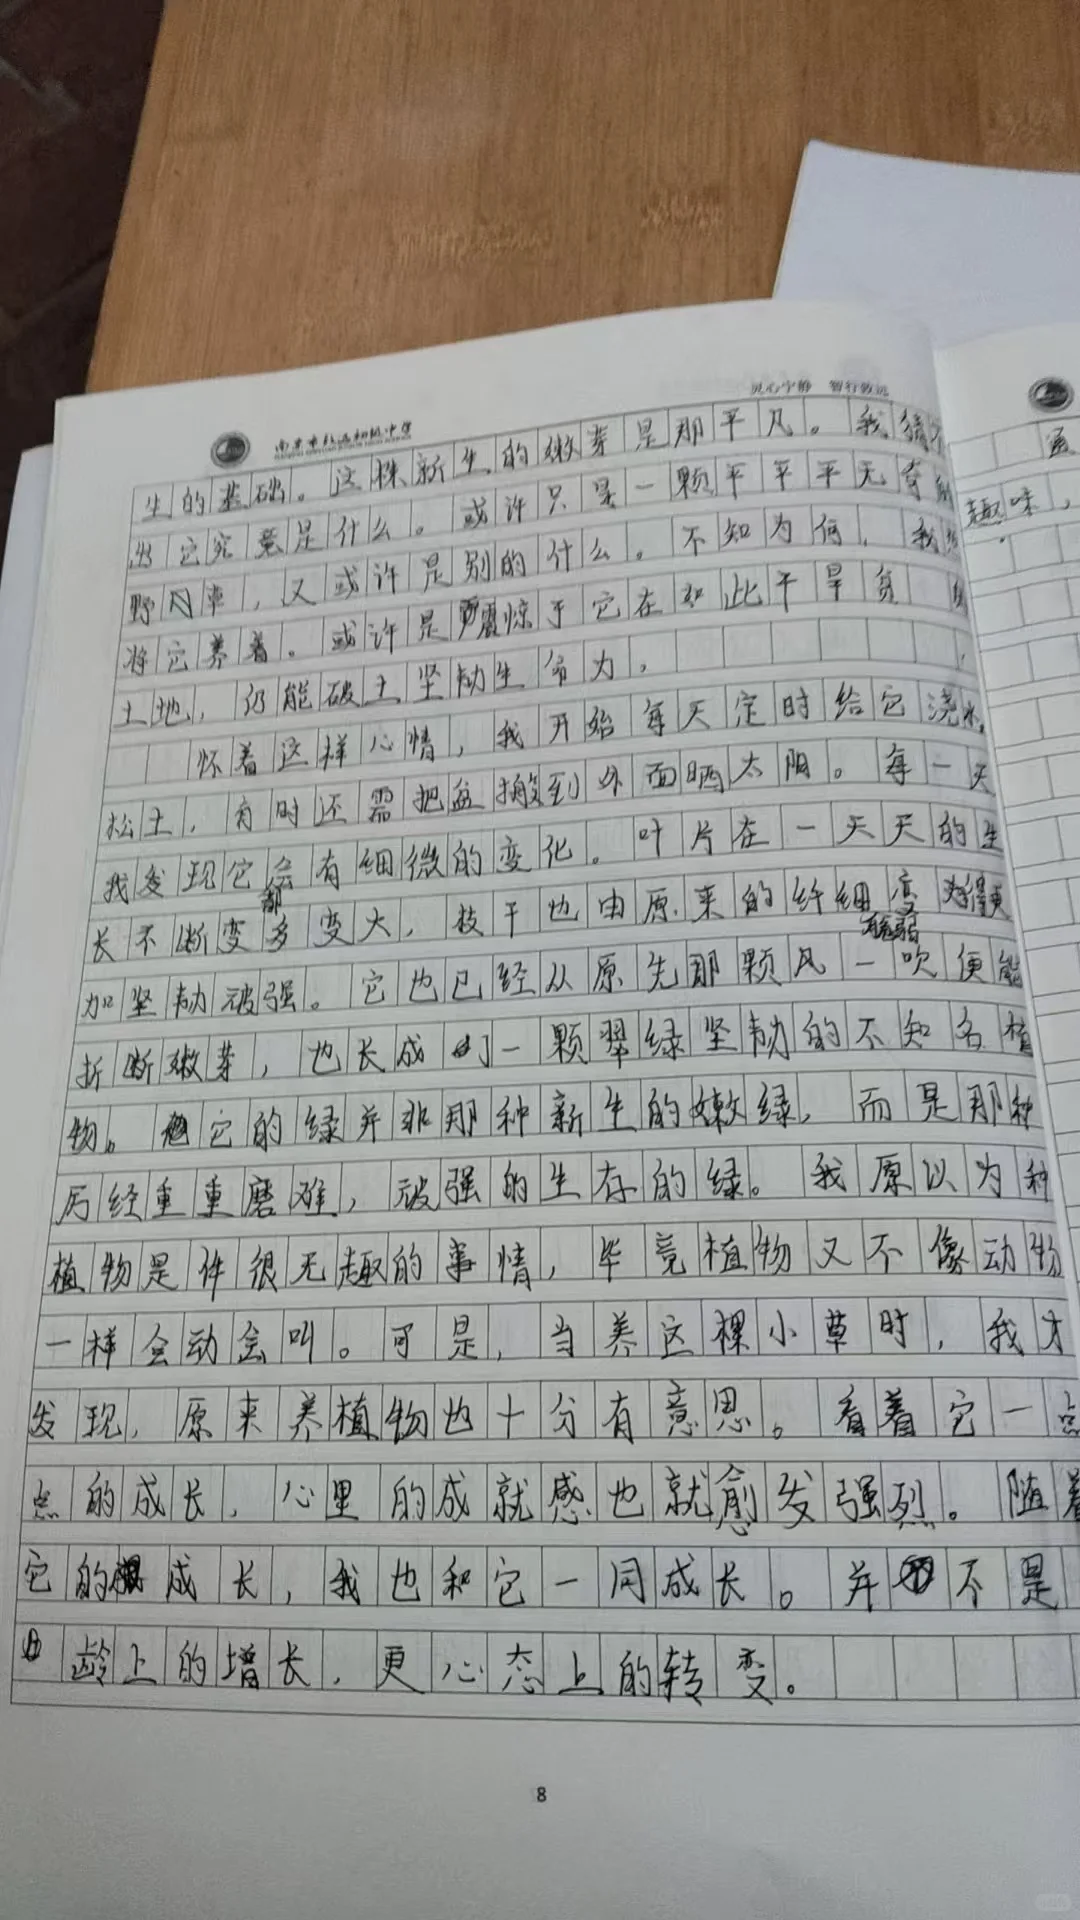 灵心宁静 智行致远
生的基础。这株新生的嫩芽是那平凡。我猜不
出它究竟是什么。或许只是一颗平平平无奇的
野草,又或许是别的什么。不知为何,我想
将它养着。或许是震惊于它在如此干旱贫
土地,仍能破土坚韧生命为,
怀着这样心情,我开始每天定时给它浇水,
松土,有时还需把盆搬到外面晒太阳。每一天
我发现它都会有细微的变化。叶片在一天天的生
长不断变多变大,枝干也由原来的纤细变得更
加坚韧顽强。它也已经从原先那颗风一吹便能
折断嫩芽,也长成了一颗翠绿坚韧的不知名植
物。它的绿并非那种新生的嫩绿,而是那种
历经重重磨难,顽强的生存的绿。我原以为种
植物是件很无趣的事情,毕竟植物又不像动物
一样会动会叫。可是,当养这棵小草时,我才
发现,原来养植物也十分有意思。看着它一点
点的成长,心里的成就感也就愈发强烈。随着
它的成长,我也和它一同成长。并不是
龄上的增长,更心态上的转变。
8
趣味,